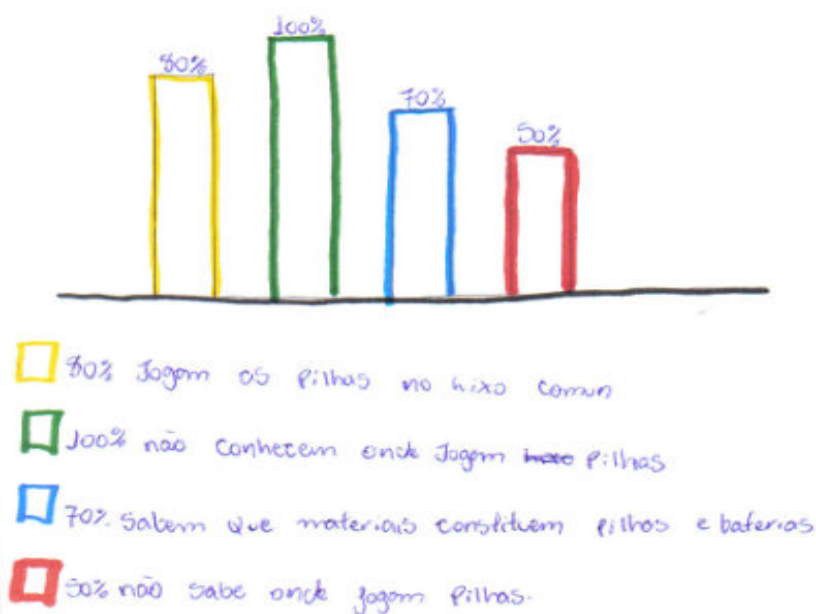 80%
100%
70%
50%
80% Jogam as pilhas no lixo comun
100% não conhecem onde Jogam pilhas
70% Sabem que materiais constituem pilhas e baterias
50% não sabe onde jogam pilhas.